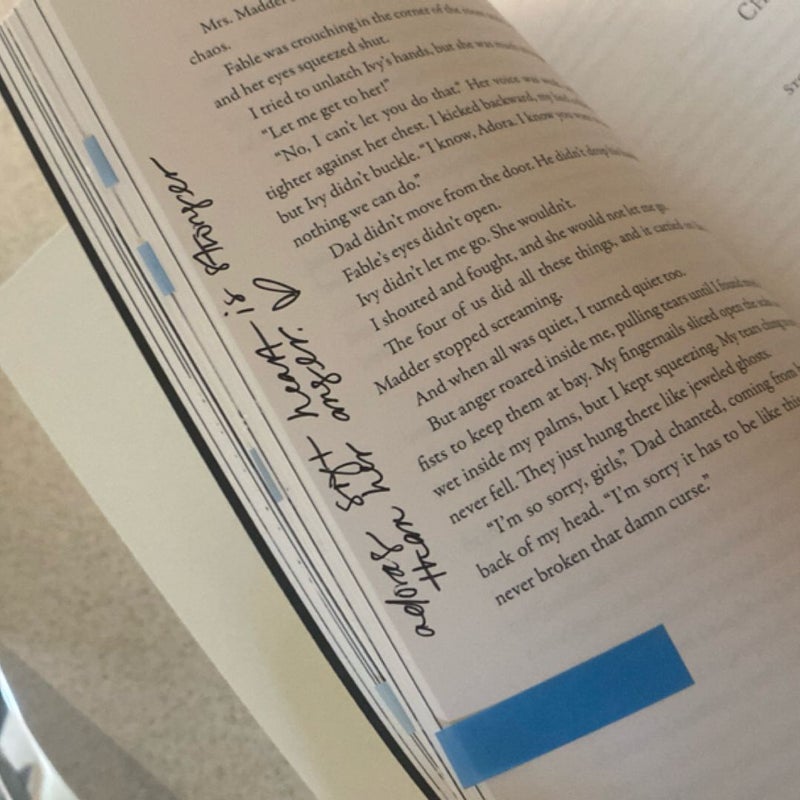 Mrs. Madder
chaos.
Fable was crouching in the corner of the
and her eyes squeezed shut.
I tried to unlatch Ivy's hands, but she was much
"Let me get to her!"
"No, I can't let you do that." Her voice was
tighter against her chest. I kicked backward, my
but Ivy didn't buckle. "I know, Adora. I know you
nothing we can do."
Dad didn't move from the door. He didn't drop
Fable's eyes didn't open.
Ivy didn't let me go. She wouldn't.
I shouted and fought, and she would not let me go.
The four of us did all these things, and it carried on
Madder stopped screaming.
And when all was quiet, I turned quiet too.
But anger roared inside me, pulling tears until I found my
fists to keep them at bay. My fingernails sliced open the
wet inside my palms, but I kept squeezing. My tears clung
never fell. They just hung there like jeweled ghosts.
"I'm so sorry, girls," Dad chanted, coming from
back of my head. "I'm sorry it has to be like this
never broken that damn curse."
adoras soft heart is stronger
than her anger. ♡
CH